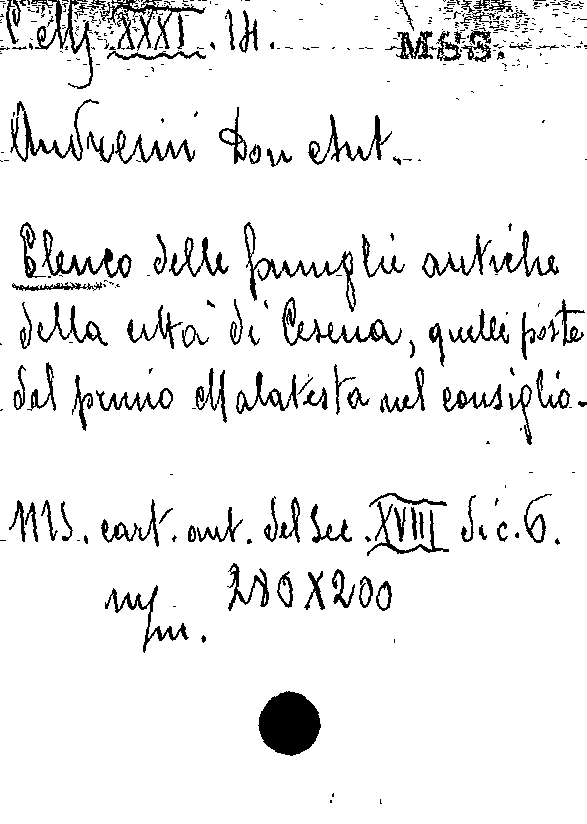 C. Mf XXXI. 14. MSS.
Andreini Don Ant.
Elenco delle famiglie antiche
della città di Cesena, quelle poste
dal primo Malatesta nel consiglio.
MS. cart. aut. del sec. XVIII di c. 6.
m/m. 280 X 200